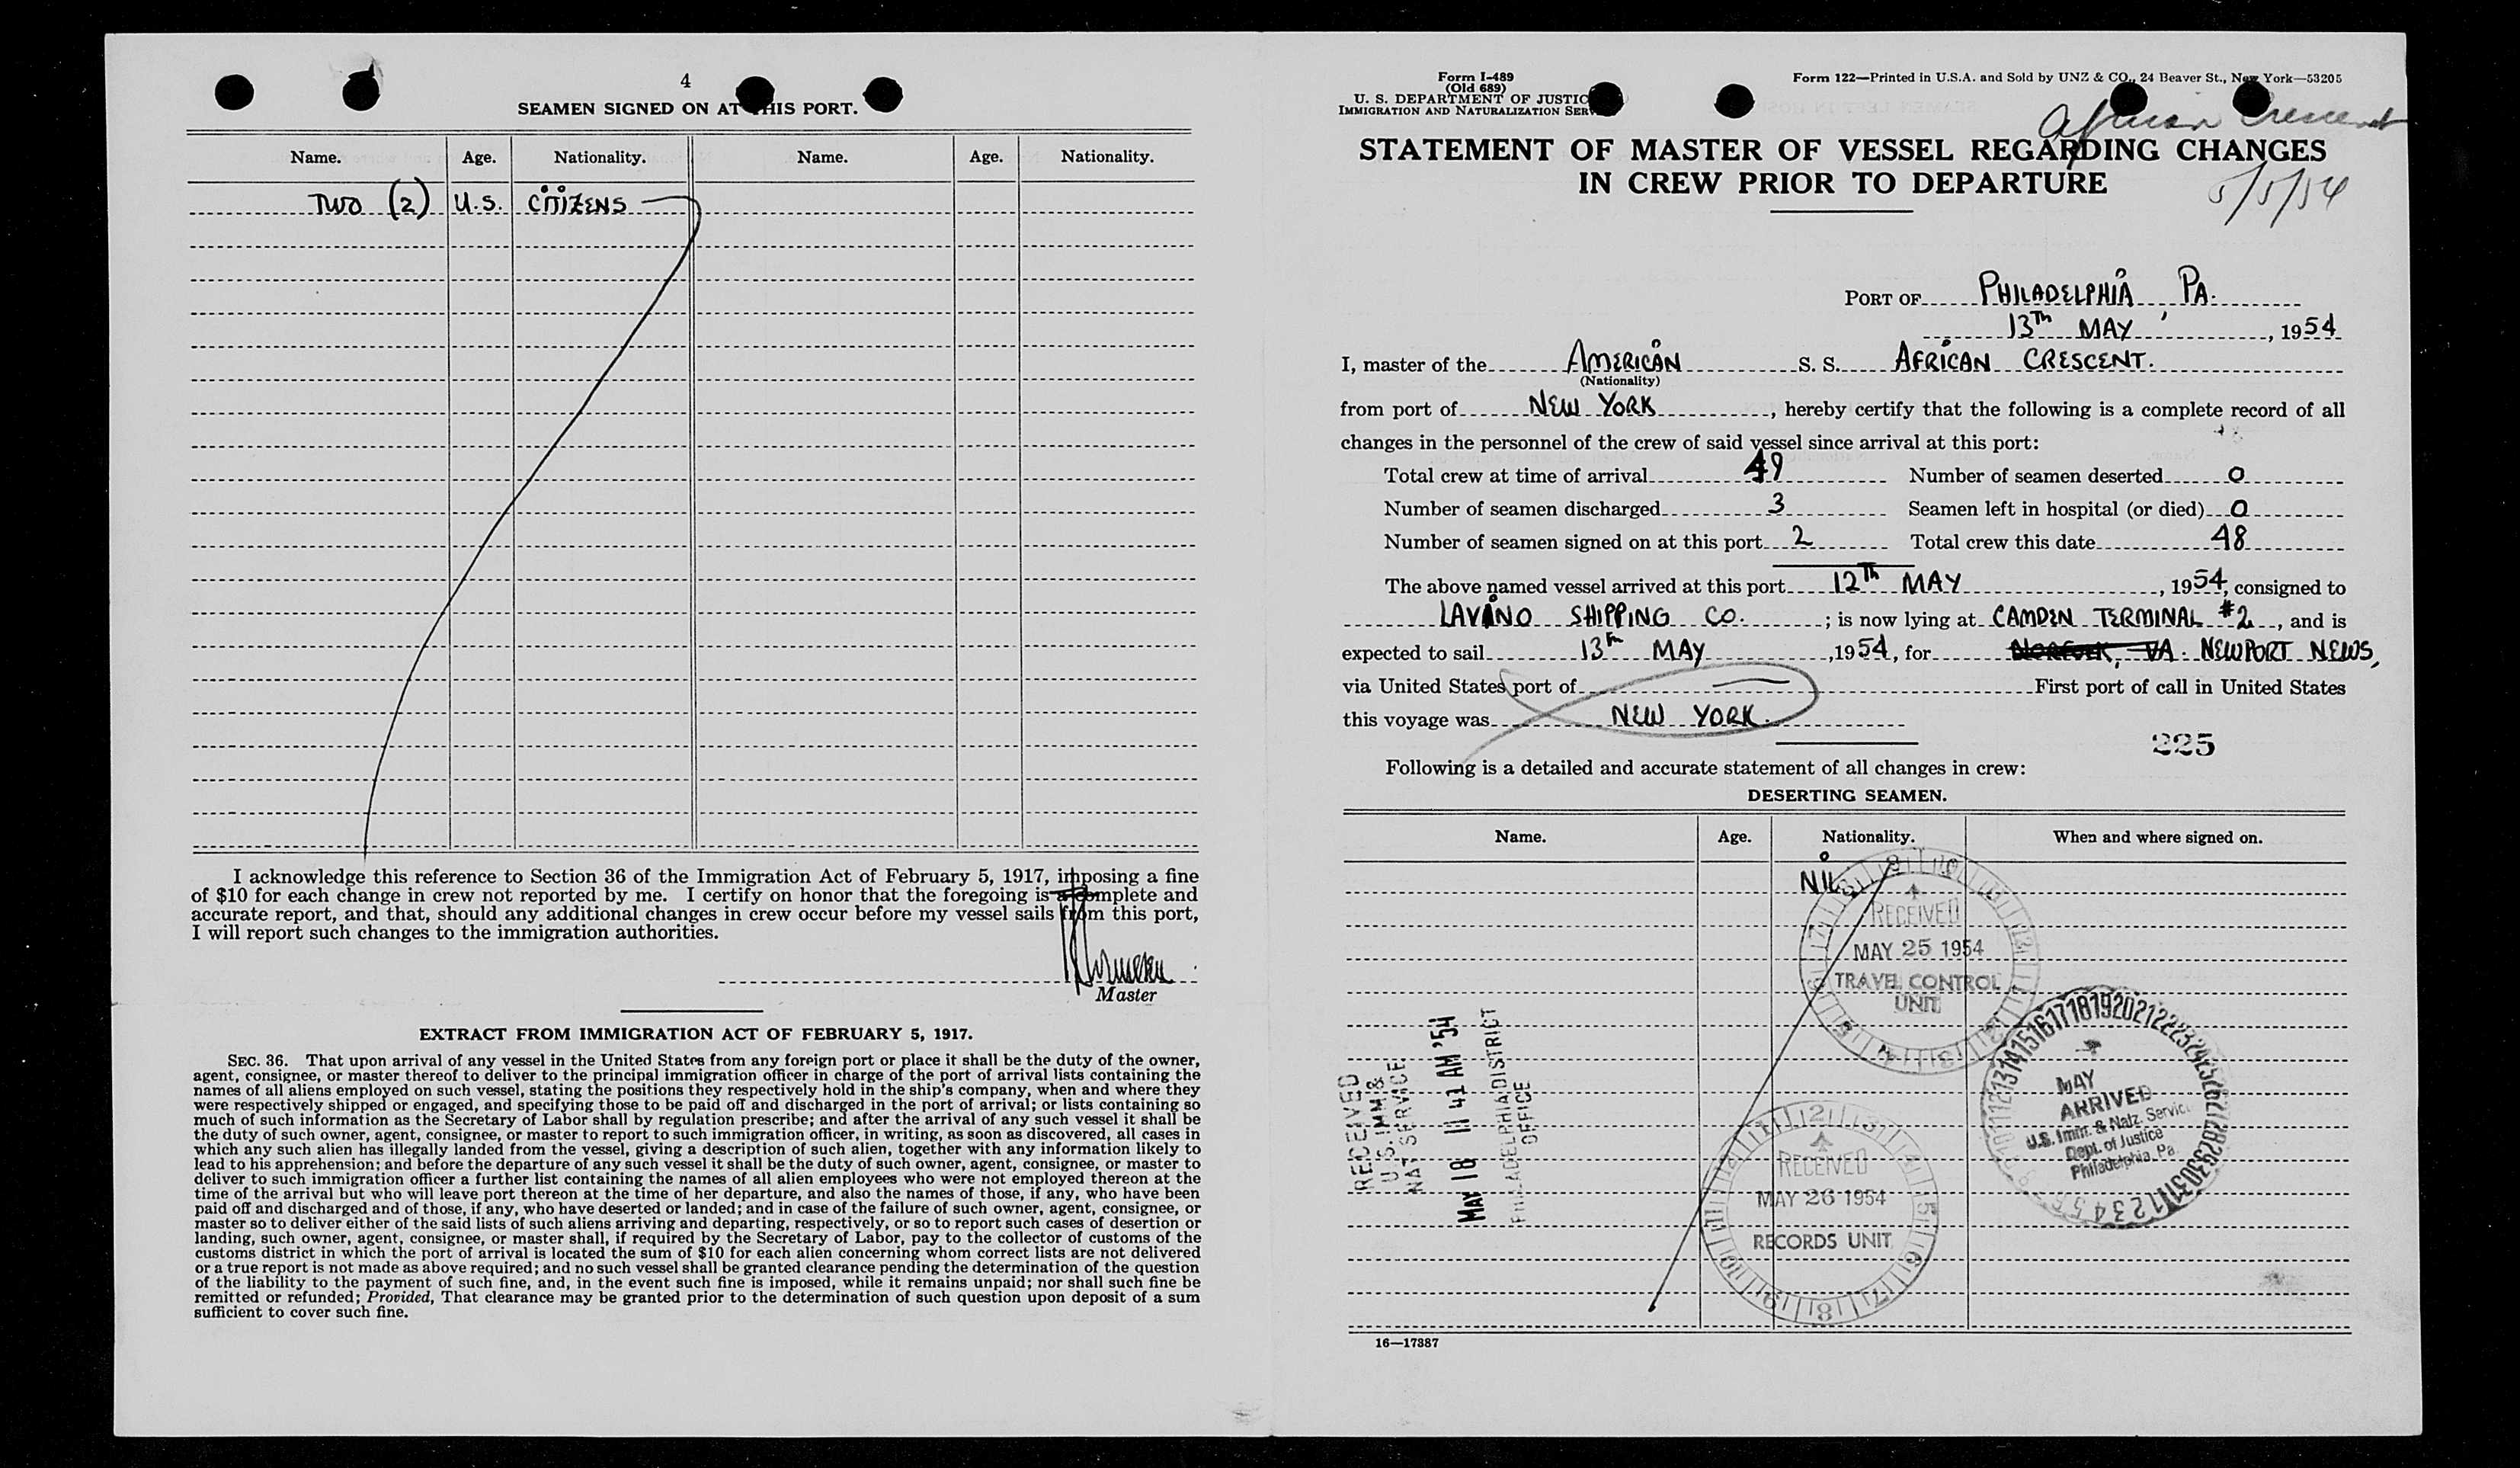 4
SEAMEN SIGNED ON AT THIS PORT.
Name. Age. Nationality. Name. Age. Nationality.
TWO (2) U.S. CITIZENS
I acknowledge this reference to Section 36 of the Immigration Act of February 5, 1917, imposing a fine
of $10 for each change in crew not reported by me. I certify on honor that the foregoing is a complete and
accurate report, and that, should any additional changes in crew occur before my vessel sails from this port,
I will report such changes to the immigration authorities.
Master
EXTRACT FROM IMMIGRATION ACT OF FEBRUARY 5, 1917.
SEC. 36. That upon arrival of any vessel in the United States from any foreign port or place it shall be the duty of the owner,
agent, consignee, or master thereof to deliver to the principal immigration officer in charge of the port of arrival lists containing the
names of all aliens employed on such vessel, stating the positions they respectively hold in the ship's company, when and where they
were respectively shipped or engaged, and specifying those to be paid off and discharged in the port of arrival; or lists containing so
much of such information as the Secretary of Labor shall by regulation prescribe; and after the arrival of any such vessel it shall be
the duty of such owner, agent, consignee, or master to report to such immigration officer, in writing, as soon as discovered, all cases in
which any such alien has illegally landed from the vessel, giving a description of such alien, together with any information likely to
lead to his apprehension; and before the departure of any such vessel it shall be the duty of such owner, agent, consignee, or master to
deliver to such immigration officer a further list containing the names of all alien employees who were not employed thereon at the
time of the arrival but who will leave port thereon at the time of her departure, and also the names of those, if any, who have been
paid off and discharged and of those, if any, who have deserted or landed; and in case of the failure of such owner, agent, consignee, or
master so to deliver either of the said lists of such aliens arriving and departing, respectively, or so to report such cases of desertion or
landing, such owner, agent, consignee, or master shall, if required by the Secretary of Labor, pay to the collector of customs of the
customs district in which the port of arrival is located the sum of $10 for each alien concerning whom correct lists are not delivered
or a true report is not made as above required; and no such vessel shall be granted clearance pending the determination of the question
of the liability to the payment of such fine, and, in the event such fine is imposed, while it remains unpaid; nor shall such fine be
remitted or refunded; Provided, That clearance may be granted prior to the determination of such question upon deposit of a sum
sufficient to cover such fine.
Form I-489
(Old 689)
U. S. DEPARTMENT OF JUSTICE
IMMIGRATION AND NATURALIZATION SERV
Form 122—Printed in U.S.A. and Sold by UNZ & CO., 24 Beaver St., New York—53205
African Crescent
STATEMENT OF MASTER OF VESSEL REGARDING CHANGES
IN CREW PRIOR TO DEPARTURE
5/5/54
PORT OF PHILADELPHIA, PA.
13TH MAY, 1954
I, master of the AMERICAN S. S. AFRICAN CRESCENT.
(Nationality)
from port of NEW YORK, hereby certify that the following is a complete record of all
changes in the personnel of the crew of said vessel since arrival at this port:
Total crew at time of arrival 49 Number of seamen deserted 0
Number of seamen discharged 3 Seamen left in hospital (or died) 0
Number of seamen signed on at this port 2 Total crew this date 48
The above named vessel arrived at this port 12TH MAY, 1954, consigned to
LAVINO SHIPPING CO.; is now lying at CAMDEN TERMINAL #2, and is
expected to sail 13TH MAY, 1954, for NORFOLK, VA. NEWPORT NEWS,
via United States port of — First port of call in United States
this voyage was NEW YORK.
225
Following is a detailed and accurate statement of all changes in crew:
DESERTING SEAMEN.
Name. Age. Nationality. When and where signed on.
NIL
RECEIVED
MAY 25 1954
TRAVEL CONTROL
UNIT
RECEIVED
U.S. IMM &
NAT SERVICE
MAY 18 11 41 AM '54
PHILADELPHIA DISTRICT
OFFICE
MAY
ARRIVED
U.S. Imm. & Natz. Service
Dept. of Justice
Philadelphia, Pa.
RECEIVED
MAY 26 1954
RECORDS UNIT
16—17387